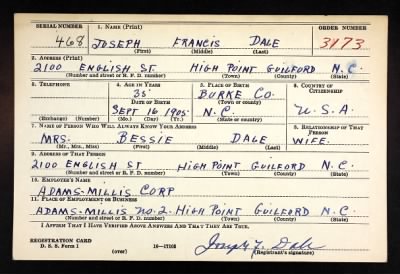 SERIAL NUMBER 1. NAME (Print) ORDER NUMBER
468 JOSEPH FRANCIS DALE 3173
(First) (Middle) (Last)
2. ADDRESS (Print)
2100 ENGLISH ST HIGH POINT GUILFORD N.C.
(Number and street or R. F. D. number) (Town) (County) (State)
3. TELEPHONE 4. AGE IN YEARS 5. PLACE OF BIRTH 6. COUNTRY OF CITIZENSHIP
35 BURKE CO.
DATE OF BIRTH (Town or county)
SEPT 16 1905 N.C. U.S.A
(Exchange) (No.) (Mo.) (Day) (Yr.) (State or country)
7. NAME OF PERSON WHO WILL ALWAYS KNOW YOUR ADDRESS 8. RELATIONSHIP OF THAT PERSON
MRS. BESSIE DALE WIFE.
(Mr., Mrs., Miss) (First) (Middle) (Last)
9. ADDRESS OF THAT PERSON
2100 ENGLISH ST HIGH POINT GUILFORD N.C.
(Number and street or R. F. D. number) (Town) (County) (State)
10. EMPLOYER'S NAME
ADAMS-MILLIS CORP
11. PLACE OF EMPLOYMENT OR BUSINESS
ADAMS-MILLIS NO.2. HIGH POINT GUILFORD N.C.
(Number and street or R. F. D. number) (Town) (County) (State)
I AFFIRM THAT I HAVE VERIFIED ABOVE ANSWERS AND THAT THEY ARE TRUE.
REGISTRATION CARD
D. S. S. Form 1 (over) 16—17105 Joseph F. Dale
(Registrant's signature)